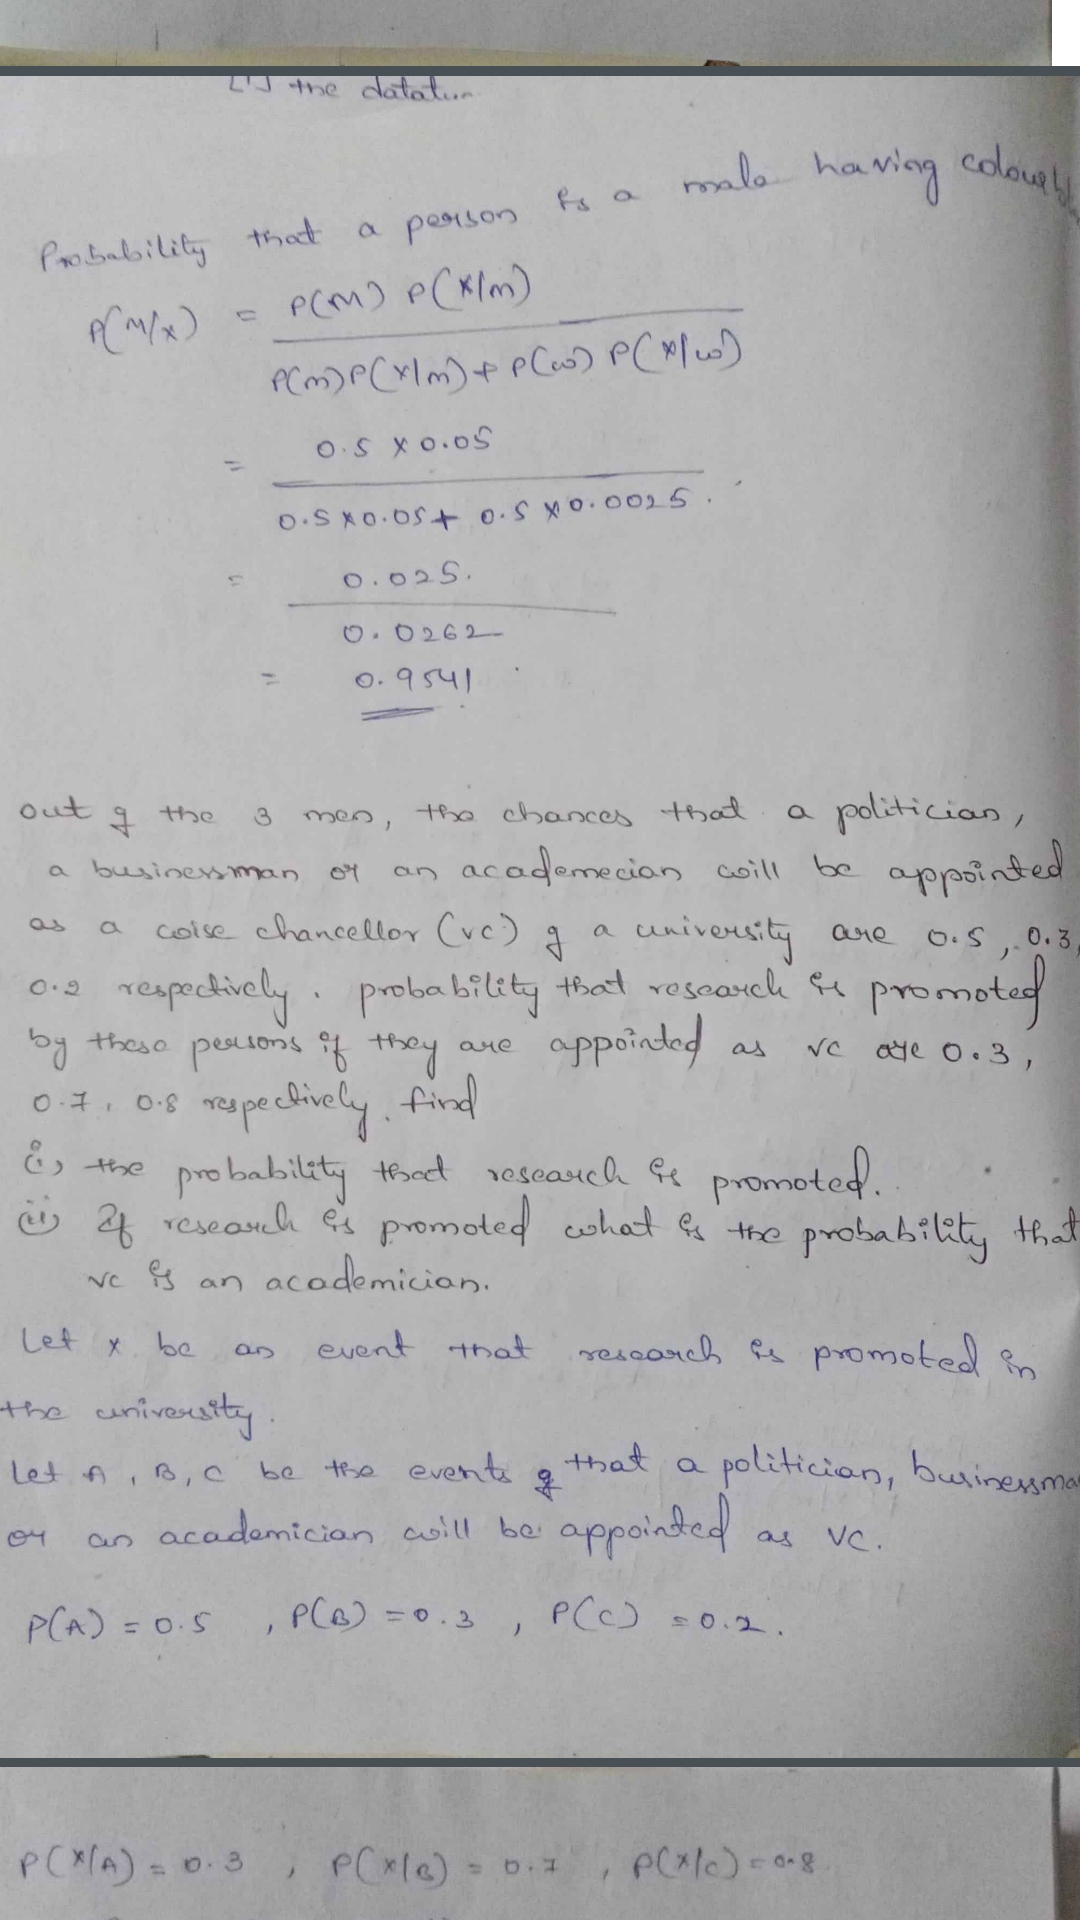 the
Probability that a person is a male having
P(M/x) = P(M) P(X/m)
P(m)P(X/m)+P(w) P(X/w)
= 0.5 x 0.05
0.5x0.05+ 0.5 x0.0025.
= 0.025.
0.0262
= 0.9541
out of the 3 men, the chances that a politician,
a businessman or an academecian will be appointed
as a coise chancellor (vc) of a university are 0.5, 0.3,
0.2 respectively. probability that research is promoted
by these persons if they are appointed as vc are 0.3,
0.7, 0.8 respectively. find
(i) the probability that research is promoted.
(ii) If research is promoted what is the probability that
vc is an academician.
Let x be an event that research is promoted in
the university.
Let A, B, C be the events that a politician, businessma
or an academician will be appointed as VC.
P(A) = 0.5 , P(B) = 0.3 , P(C) = 0.2.
P(X/A) = 0.3 , P(X/B) = 0.7 , P(X/C) = 0.8